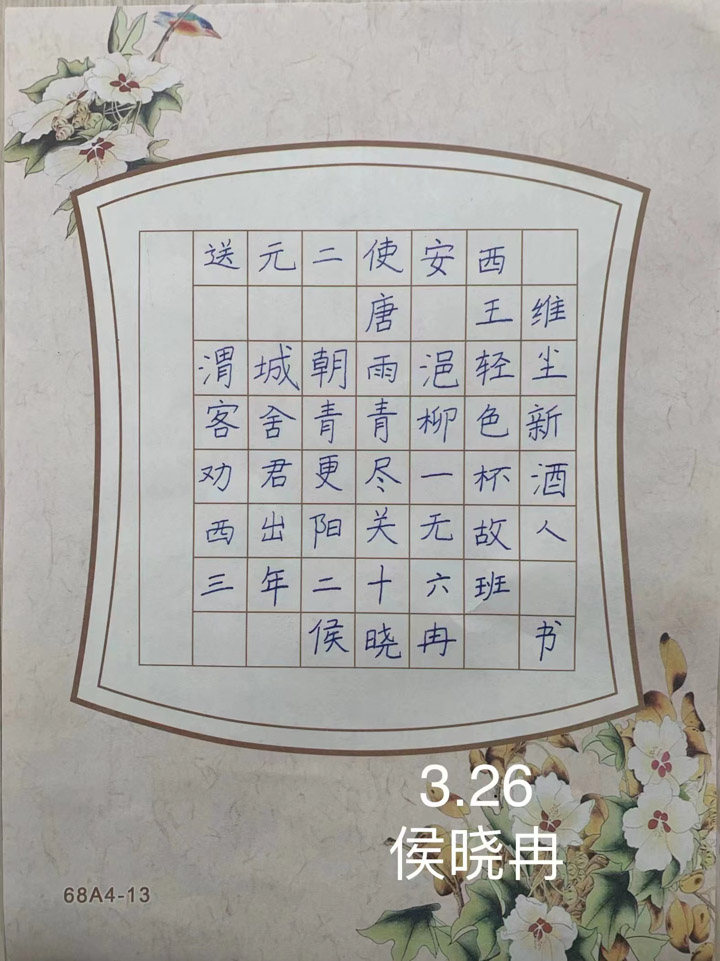 送元二使安西
唐 王维
渭城朝雨浥轻尘
客舍青青柳色新
劝君更尽一杯酒
西出阳关无故人
三年二十六班
侯晓冉 书
3.26
侯晓冉
68A4-13